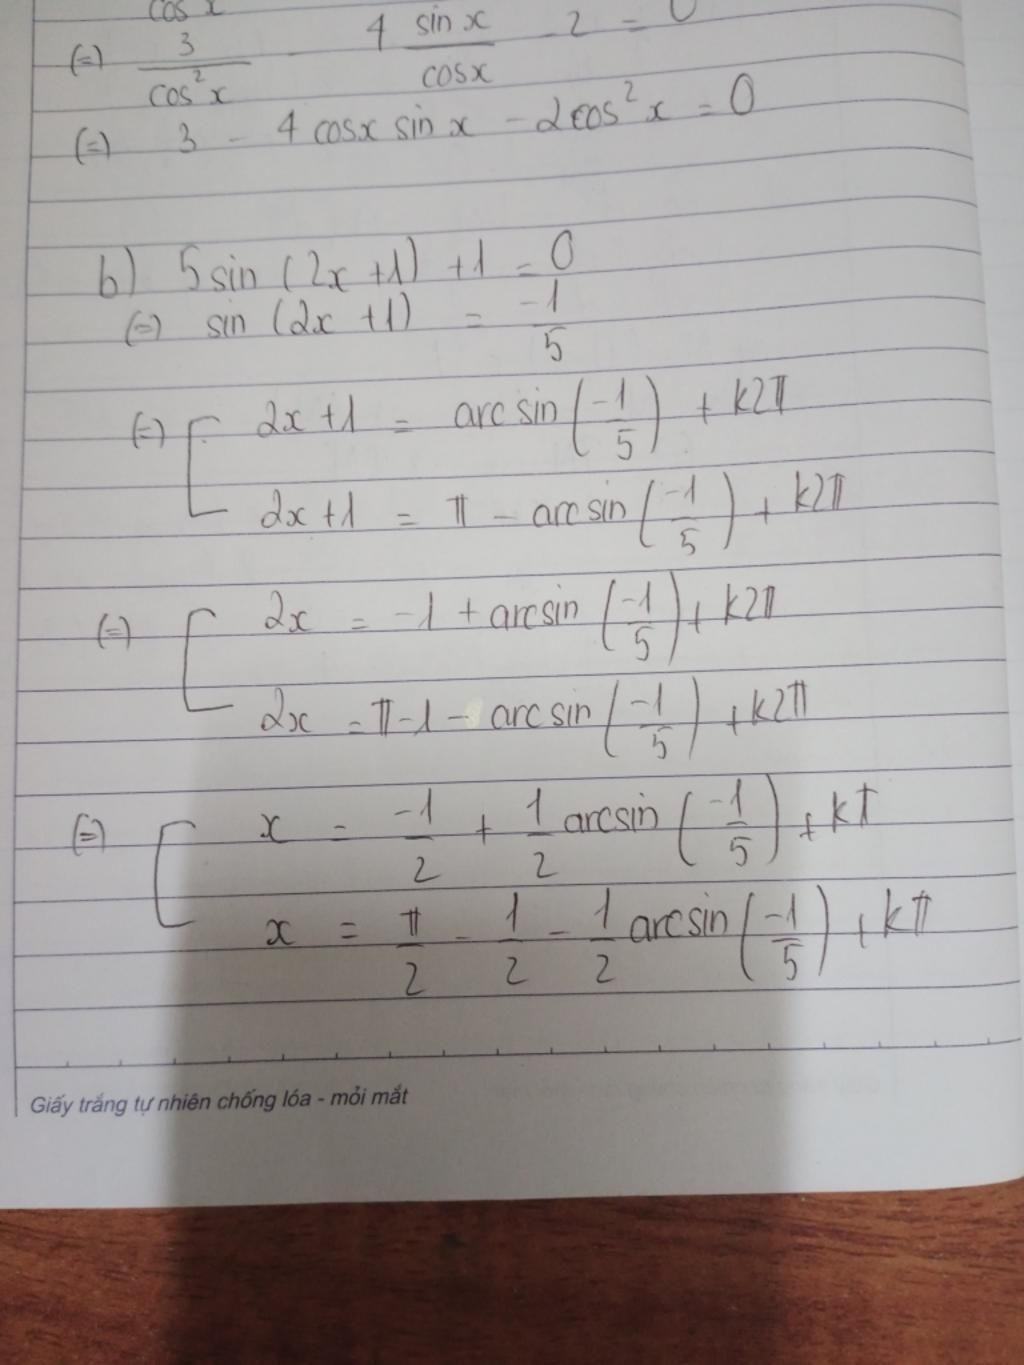 cos x
(=) 3/cos²x - 4 sin x/cosx - 2 = 0
(=) 3 - 4 cosx sin x - 2cos²x = 0
b) 5sin (2x +1) +1 = 0
(=) sin (2x +1) = -1/5
(=) [ 2x +1 = arc sin (-1/5) + k2π
2x +1 = π - arcsin (-1/5) + k2π
(=) [ 2x = -1 + arcsin (-1/5) + k2π
2x = π-1 - arcsin (-1/5) + k2π
(=) [ x = -1/2 + 1/2 arcsin (-1/5) + kπ
x = π/2 - 1/2 - 1/2 arcsin (-1/5) + kπ
Giấy trắng tự nhiên chống lóa - mỏi mắt